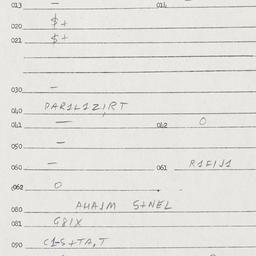 013 — 014
020 $+
021 $+
030 —
040 DAR1L1ZIRT
041 — 042 0
050 —
060 — 061 R1F1J1
062 0
080 AHAJM S+NEL
081 G8IX
090 C1-S+TA,T